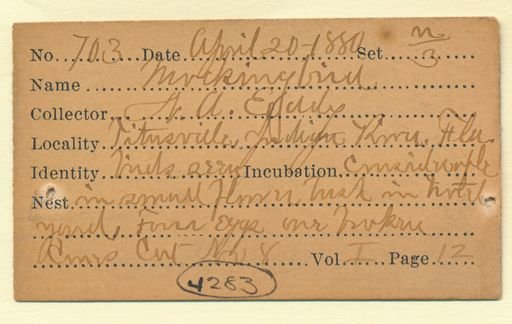 No. 703 Date April 20-1880 Set n/3
Name Mockingbird
Collector H. A. Eddy
Locality Titusville, Indian River, Fla.
Identity birds seen Incubation Considerable
Nest in small flower bush in hotel
yard. Four eggs one broken
Cat. No. 8 Vol. I Page 12
4283